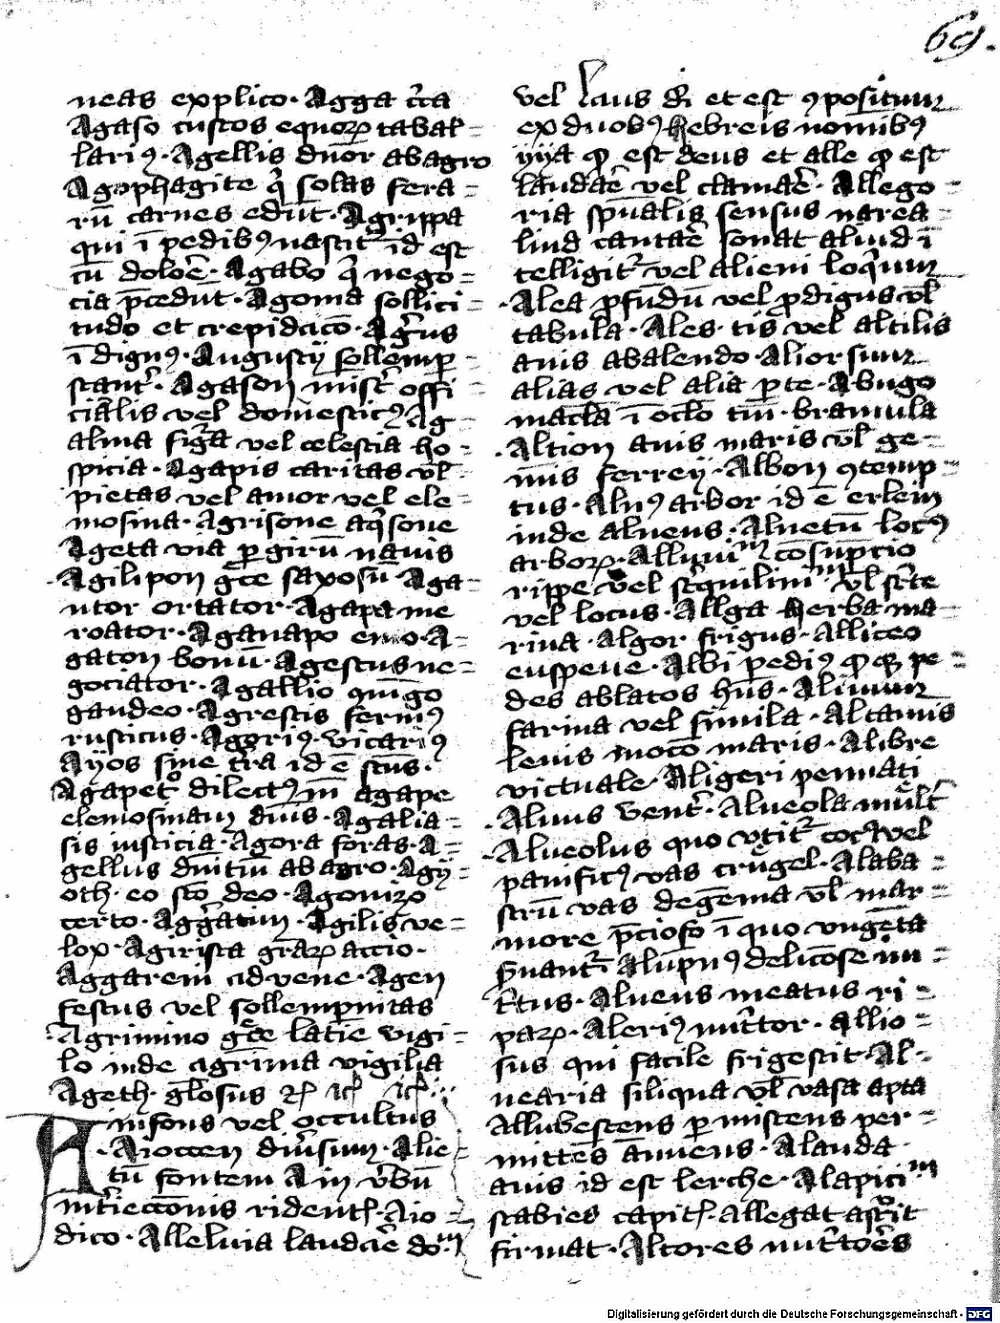 69.
neas explico · Agga cͬca
Agaso custos equoꝝ tabal=
lariꝰ · Agellis dn̄or ab agro
Agophagite q̄ solas fera=
rū carnes edūt · Agrippa
qui ī pedibꝰ nascit͛ id est
cū dolōe · Agabo q̄ nego=
cia p̄cedūt · Agonia sollici=
tudo et crepidacō · Agͬus
ī dignꝰ · Augustij sollemp=
stant͛ · Agason mīst͛ offi=
cialis vel domesticꝰ Ag=
alma figͬa vel celestia ho=
spicia · Agapis caritas vl̄
pietas vel amor vel ele=
mosina · Agrisone aq̄sone
Ageta via ꝑ girū nauis
Agilipon gͬce saxosū · Aga=
utor ortator · Agapa me
roator · Aganapo emo · A=
gaton bonū · Agestus ne=
gociator · Agallio quingo
gaudeo · Agrestis feriuꝰ
rusticus · Agoriꝰ · vicariꝰ
Ayos sine tͬra id ē scūs ·
Agapet͛ dilectꝰ īn agape
elemosinam̄ dīus · Agalia=
sis iusticia · Agora foras · A=
gellus dītiū ab agro · Agÿ=
oth · eo scō deo · Agonizo
certo · Aggͬatim · Agilis ve=
lox · Agirista gr̄aꝝ accio ·
Aggarem aduene · Agen
festus vel sollempnitas
Agrimino gͬce latie vigi=
lo inde agrīma vigilia
Ageth · gl̄osus
insons vel occultus
A · Aiocten diūsum · Alie=
tū fontem A in v̄bū
int͛iecconis rident͛ · Aio=
dico · Alleluia laudaͤe do͞m
vel laus di et est ꝯpositum
ex duobꝰ hebreis nominibꝰ
ÿÿa qͦ est deus et alle qͦ est
laudaͤe vel clamaͤe · Allego=
ria spūalis sensus narea=
liud cantaͤe sonat aliud ī
telligit͛ vel alieni loqͥum
Alea ꝓfundū vel ꝓdigus vl̄
tabula · Ales · tis vel altilis
auis abalendo · Aliorsum
alias vel alia ꝑte · Albugo
macla ī oclo tm̄ · bramula
Altion auis maris vl̄ ge=
nus ferreÿ · Albon ꝯtemp=
tus · Alnꝰ arbor id ē erlein
inde alueus · Aluetū locꝰ
arboꝝ · Alluuiͫ cōsūpcio
rippe vel st͛quiliniͫ vl̄ st͛te
vel locus · Allga herba ma=
rina · Algor frigus · Alliceo
euspeue · Albi pediꝰ qͦ qꝫ pe=
des ablatos hn̄s · Alimum
farina vel simila · Altanus
lenis mocō maris · Alibre
victuale · Aligeri pennati
Aluus vent͛ · Alueola mult͛
Alueolus quo vtit͛ cocꝰ vel
panificꝰ vas crugel · Alaba=
strū vas degēma vl̄ mar=
more p̄ciosō ī quo vngēta
s͛uant͛ · Alūpnꝰ delicōse nu=
t͛tus · Alueus meatus ri=
paꝝ · Aleriꝰ nut͛tor · Allio=
sus qui facile frigescit · Al=
uearia siliqua vl̄ vasa apta
Allubescens ꝑ miscens per=
mittēs ānuens · Alauda ·
auis id est lerche · Alapiciͫ
scabies capit͛ · Allegat ascͥit
firmat · Altores nut͛toͤes